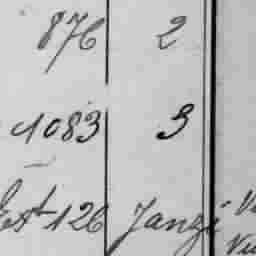 876 2
1083 3
Est 126 Janzi